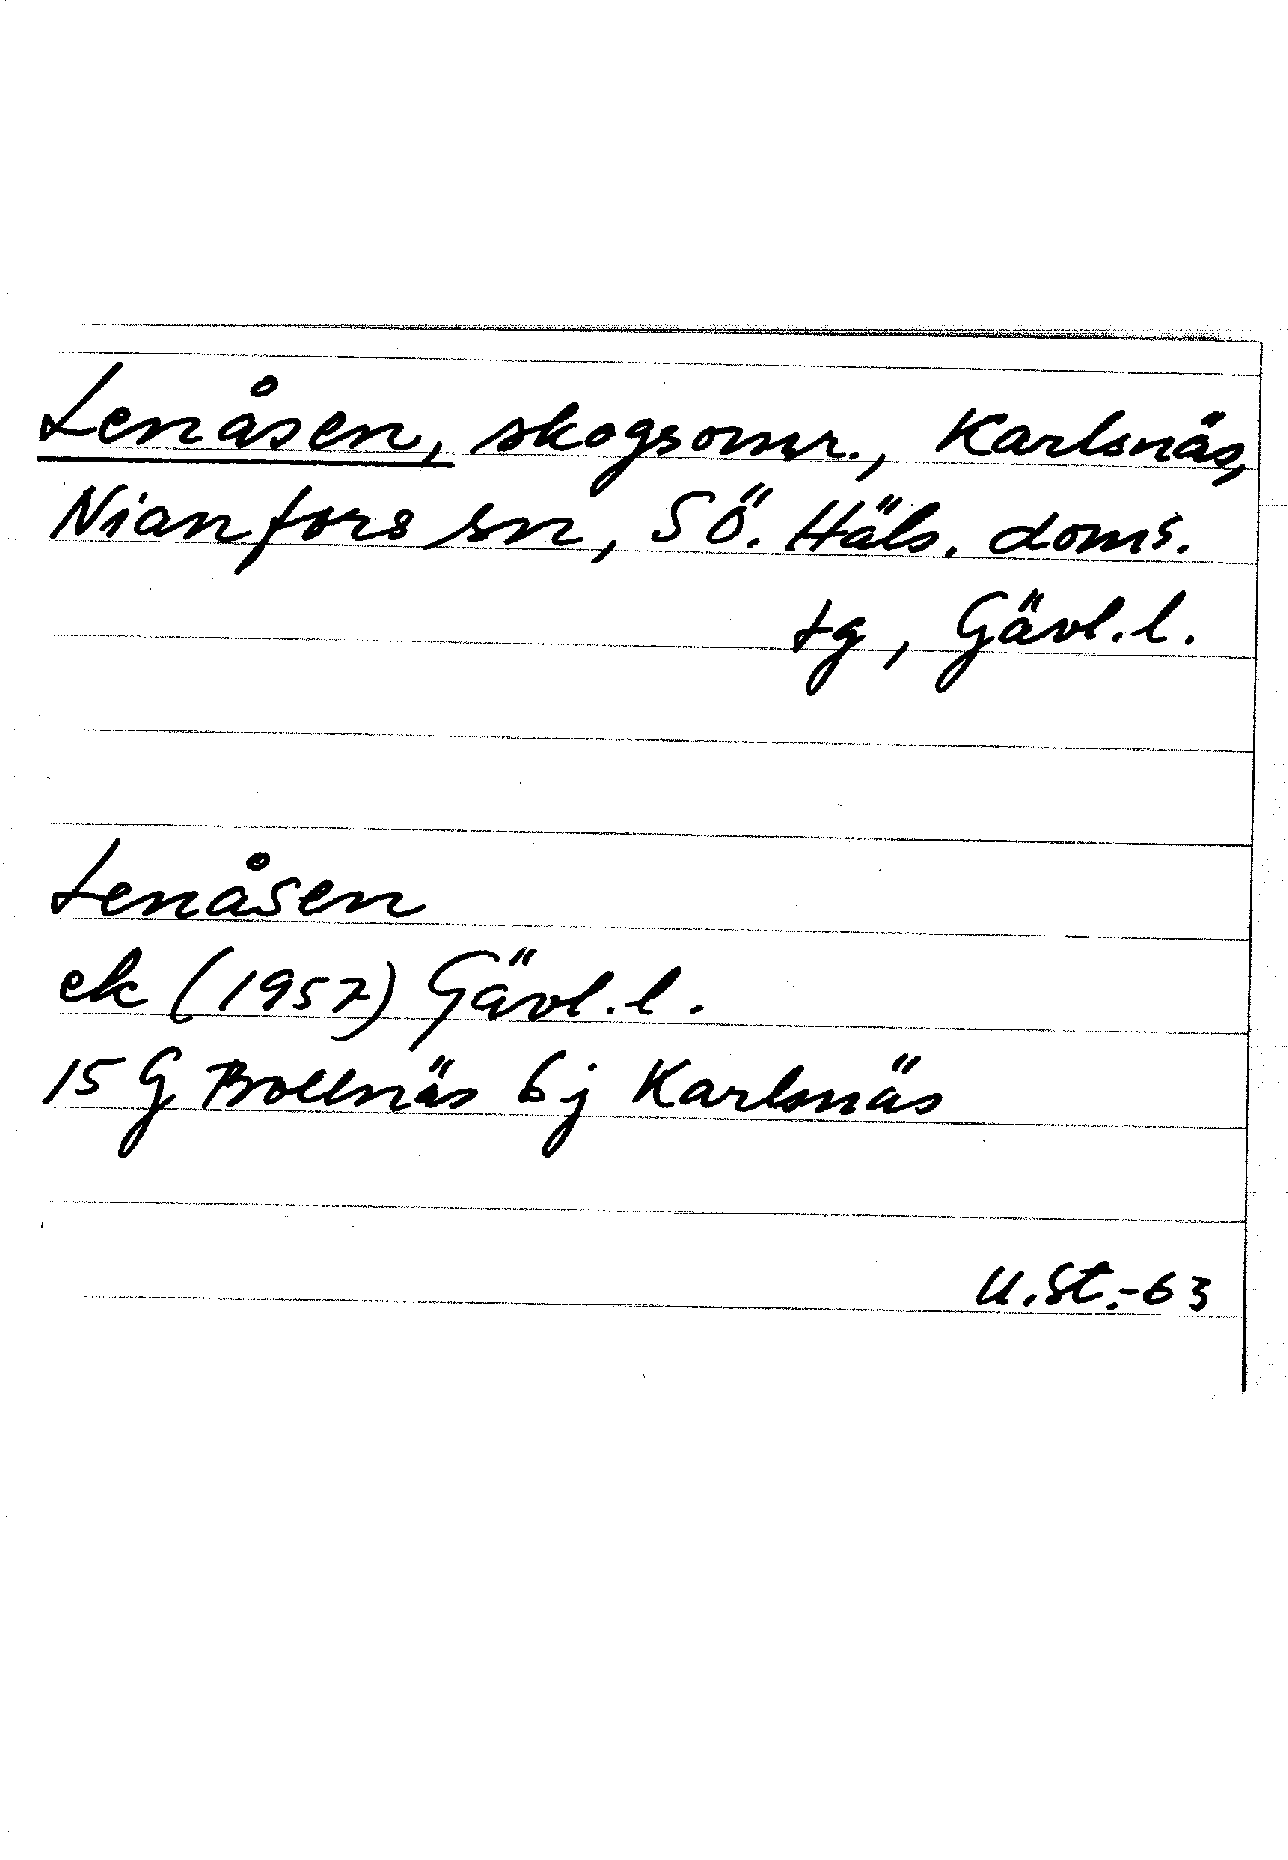 Lenåsen, skogsomr., Karlsnäs,
Nianfors sn, SÖ. Häls. doms.
tg, Gävl. l.
Lenåsen
ek (1957) Gävl. l.
15 G Bollnäs 6 j Karlsnäs
U. St. -63